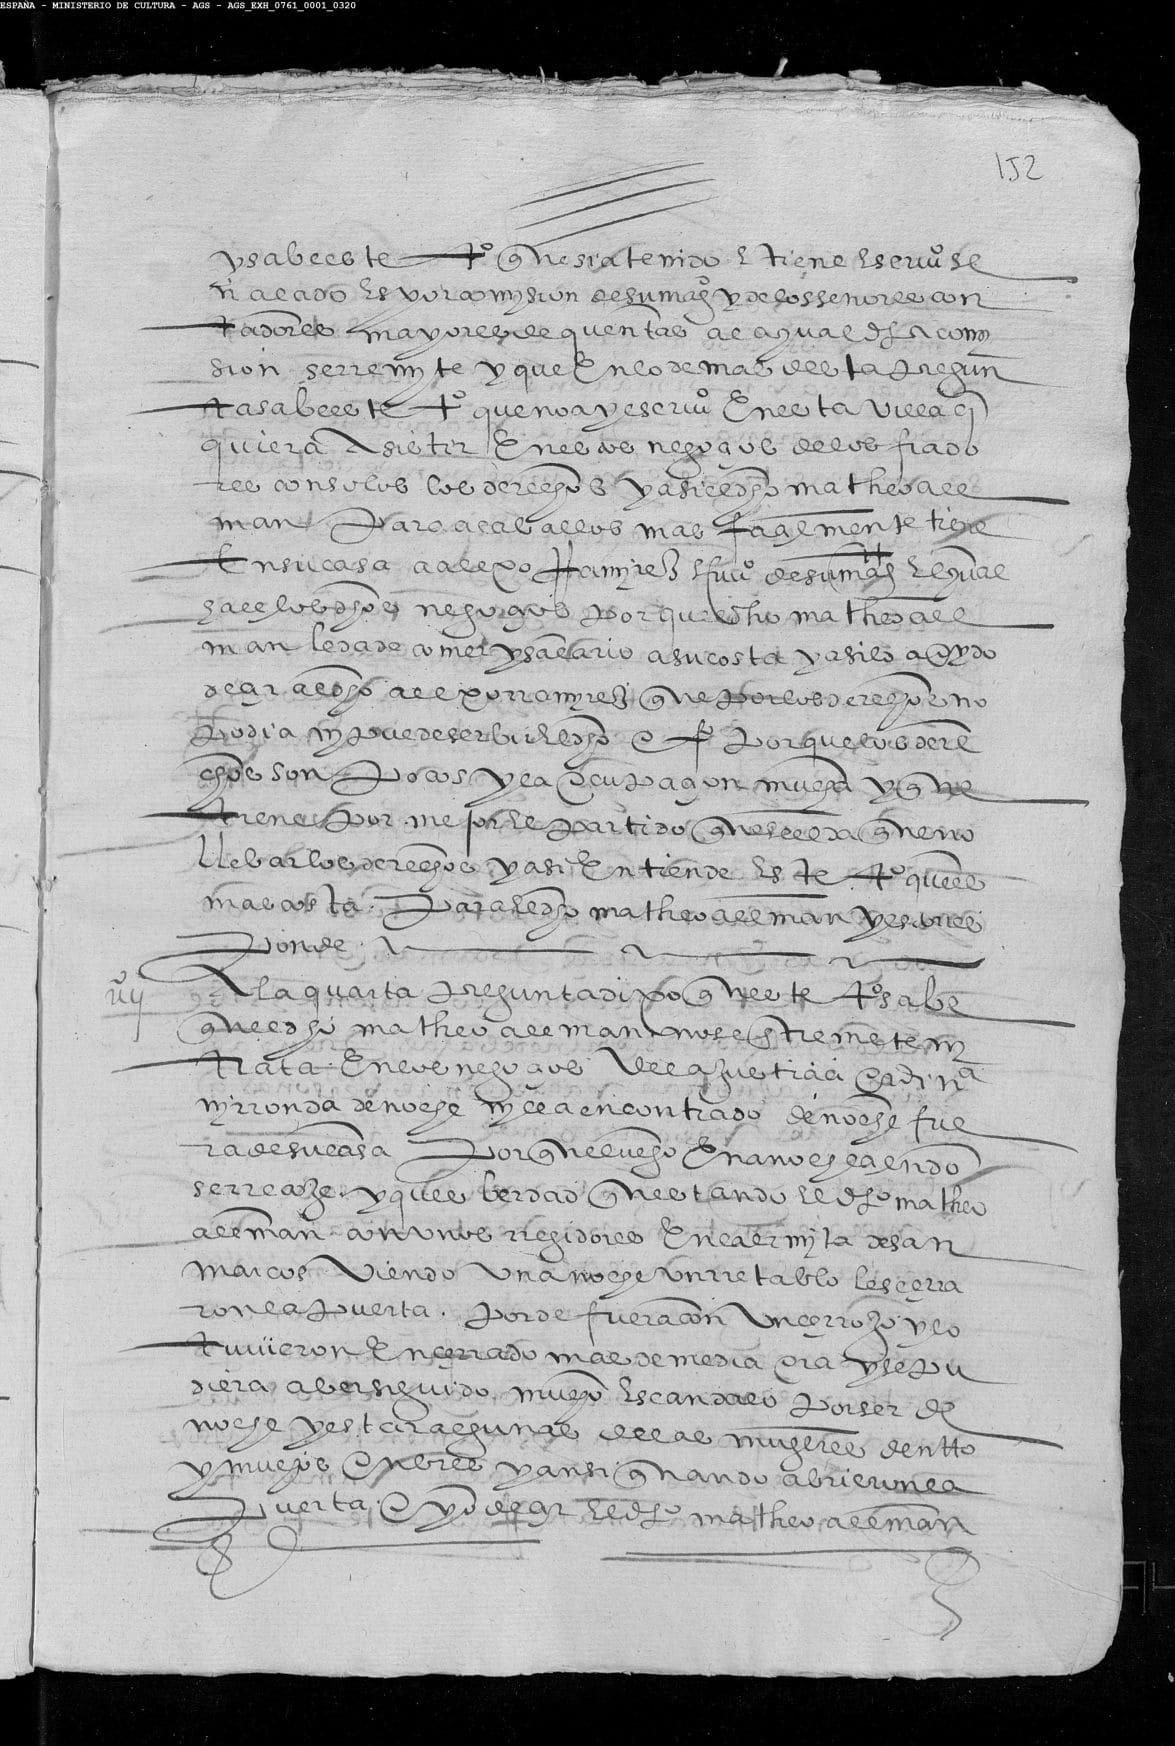 ESPAÑA - MINISTERIO DE CULTURA - AGS - AGS_EXH_0761_0001_0320
152
y sabe este tº que si a tenido e tiene escriuº se
ñalado es por comysion de su magd y de los señores con
tadores mayores de quentas a la qual dha comy
sion se rremyte y que en lo demas desta pregun
ta sabe este tº que no ay escriuº en esta villa q
quiera asistir en estos negoçios de los fiado
res con solos los derechos y asi el dho matheo ale
man para acaballos mas façilmente tiene
en su casa a alexo rramyrez escriuº de su magd el qual
haçe los dhos negoçios porque el dho matheo ale
man le da de comer y salario a su costa y asi lo a oydo
deçir al dho alexo rramyrez que por los derechos no
podia ny puede serbir el dho ofº porque los dere
chos son pocos y la ocupaçion mucha y que
tiene por mejor el partido que se le da que no
llebar los derechos y asi entiende este tº que es
mas costa para el dho matheo aleman y esto res
ponde
iiijº
A la quarta pregunta dixo que este tº sabe
que el dho matheo aleman no se entremete ny
trata en los negoçios de la justiçia ordinª
ny rronda de noche ny le a encontrado de noche fue
ra de su casa porque luego en anocheçiendo
se rrecoze y que es berdad que estando el dho matheo
aleman con unos rregidores en la ermyta de san
marcos viendo una noche un rretablo les çerra
ron la puerta por de fuera con un çerrojo y lo
tuvieron ençerrado mas de media ora y se pu
diera aber seguido mucho escandalo por ser de
noche y estar algunas de las mugeres dentro
y muchos onbres y ansi quando abrieron la
puerta oyo deçir el dho matheo aleman